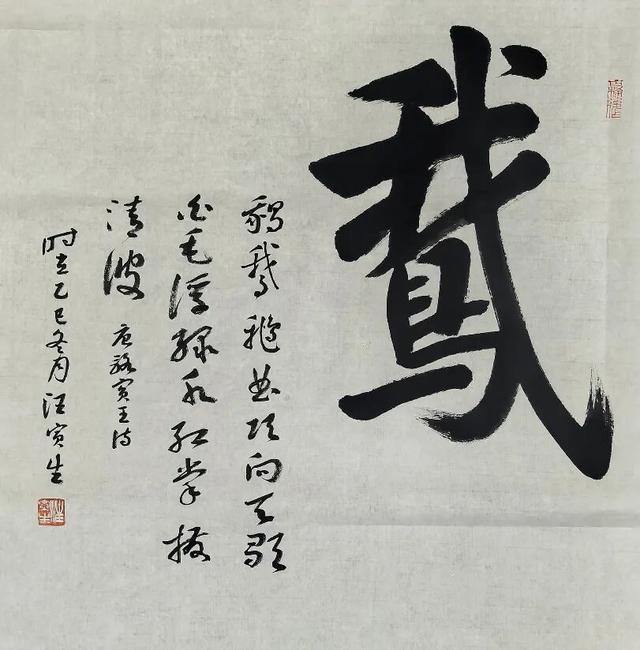 鵞
鵝鵞鵝曲項向天歌
白毛浮緑水紅掌撥
清波 唐駱賓王詩
时在乙巳冬月汪寅生